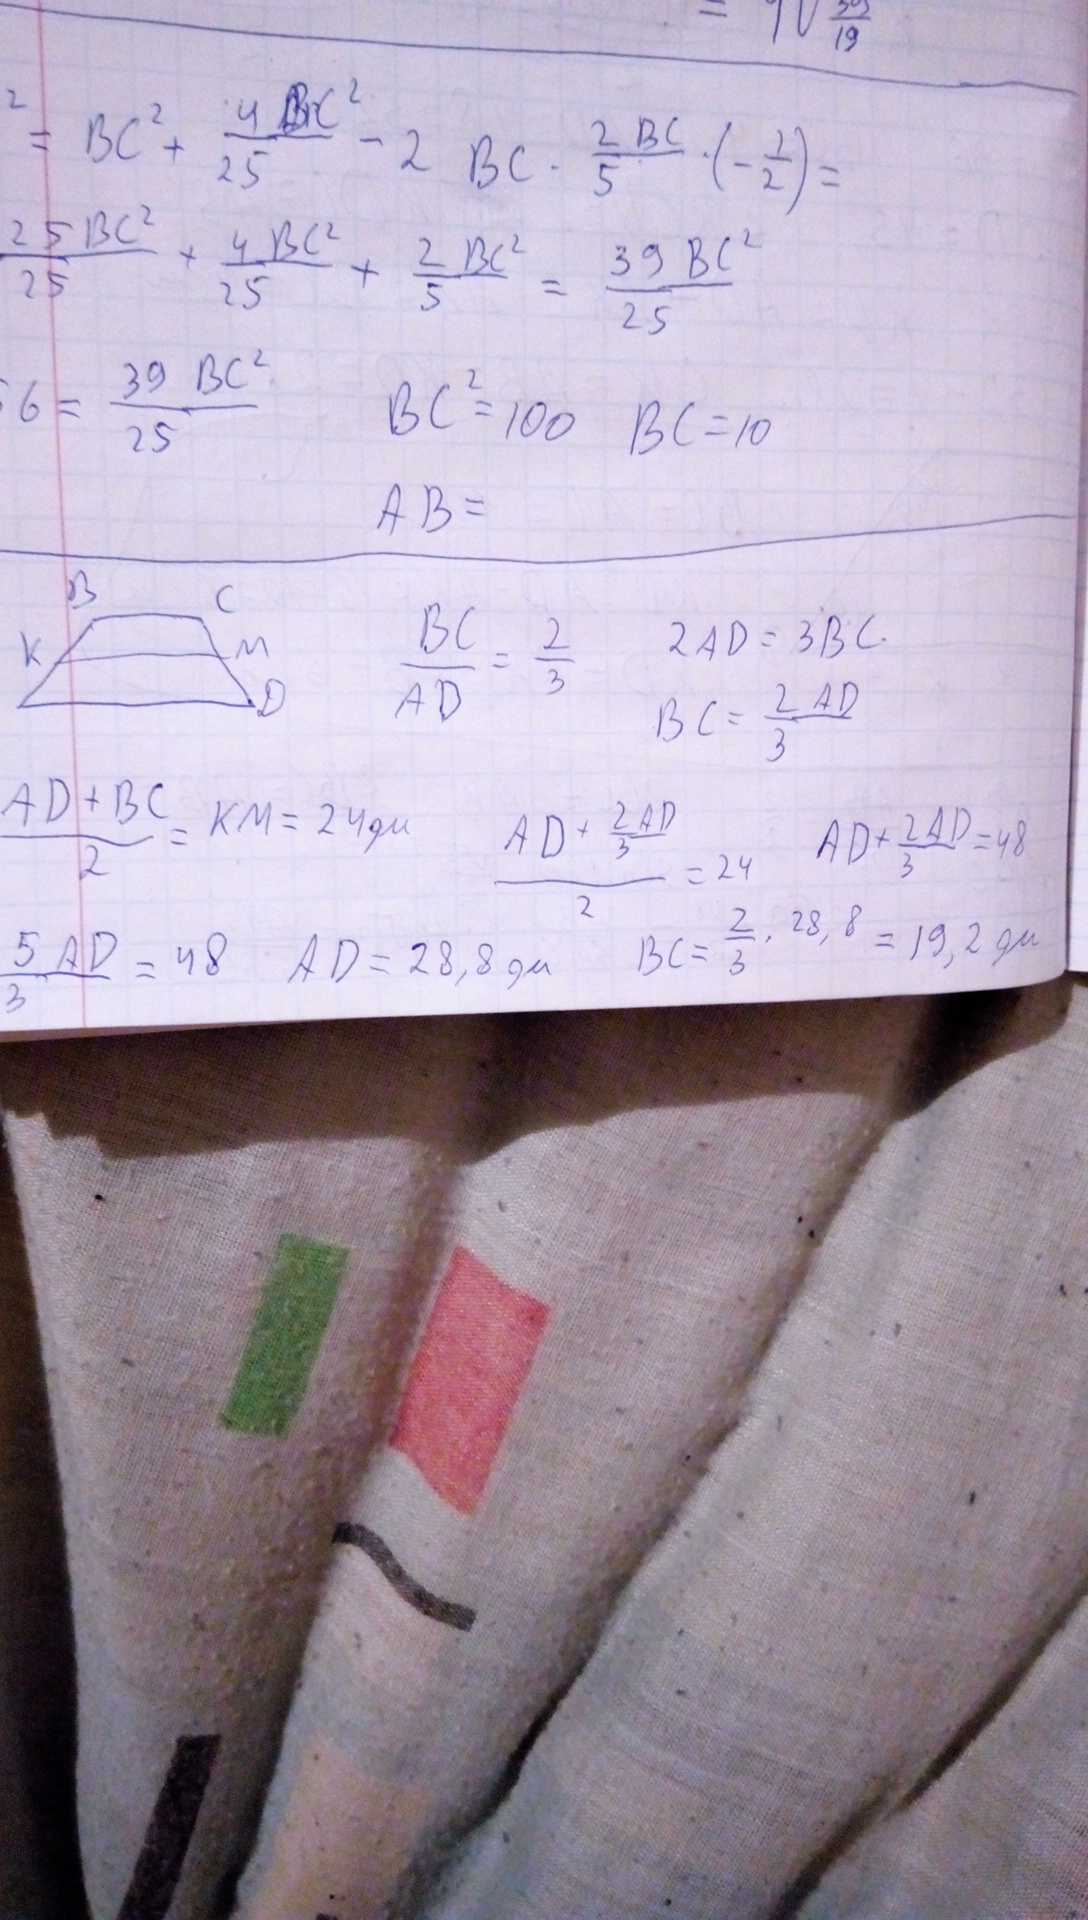 = √39/19
² = BC² + 4BC²/25 - 2 BC · 2BC/5 · (-1/2) =
25BC²/25 + 4BC²/25 + 2BC²/5 = 39BC²/25
56 = 39 BC²/25 BC² = 100 BC = 10
AB =
B C
K M
D
BC/AD = 2/3 2AD = 3BC
BC = 2AD/3
AD + BC/2 = KM = 24дм AD + 2AD/3/2 = 24 AD + 2AD/3 = 48
5AD/3 = 48 AD = 28,8 дм BC = 2/3 · 28,8 = 19,2 дм